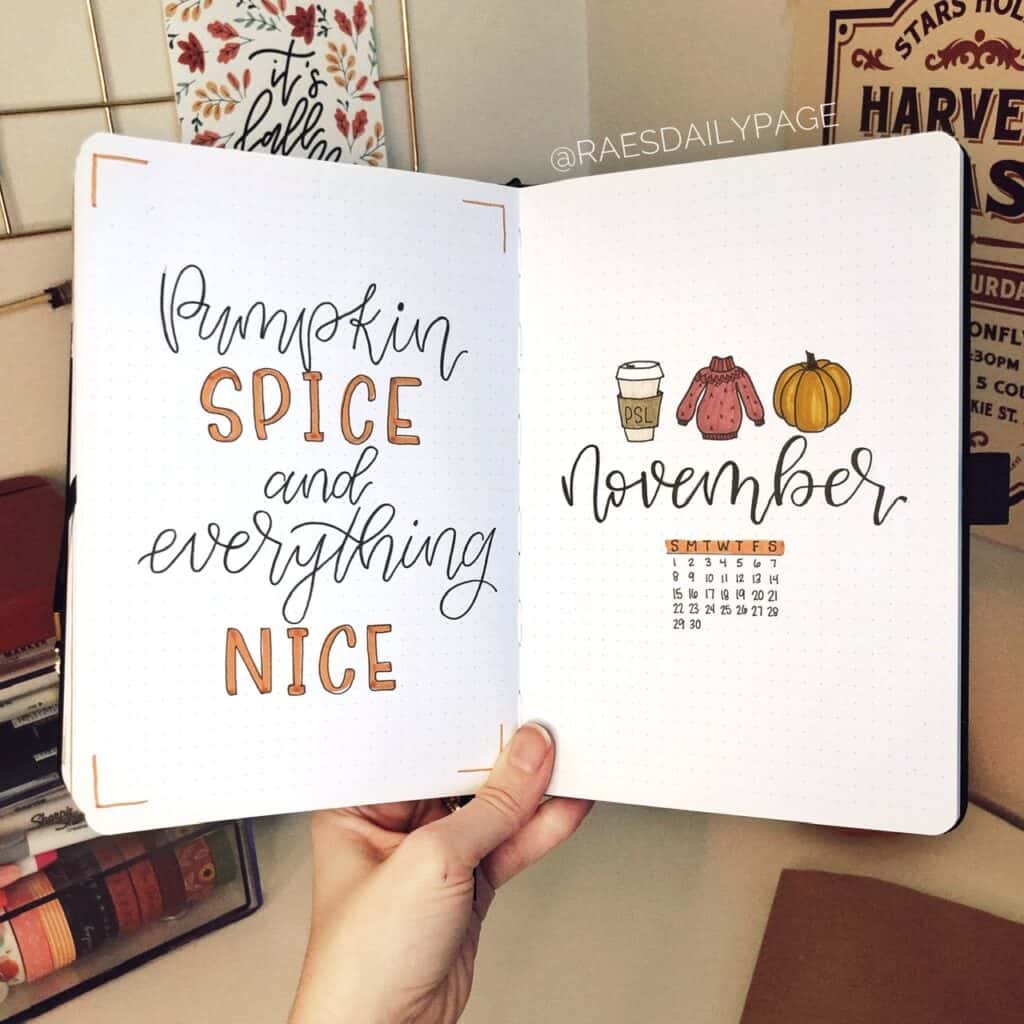 it's
fall
@RAESDAILYPAGE
STARS
HARVE
URDA
ONFL
:30PM
5 CO
KIE ST.
Pumpkin
SPICE
and
everything
NICE
PSL
november
S M T W T F S
1 2 3 4 5 6 7
8 9 10 11 12 13 14
15 16 17 18 19 20 21
22 23 24 25 26 27 28
29 30
Sharpie